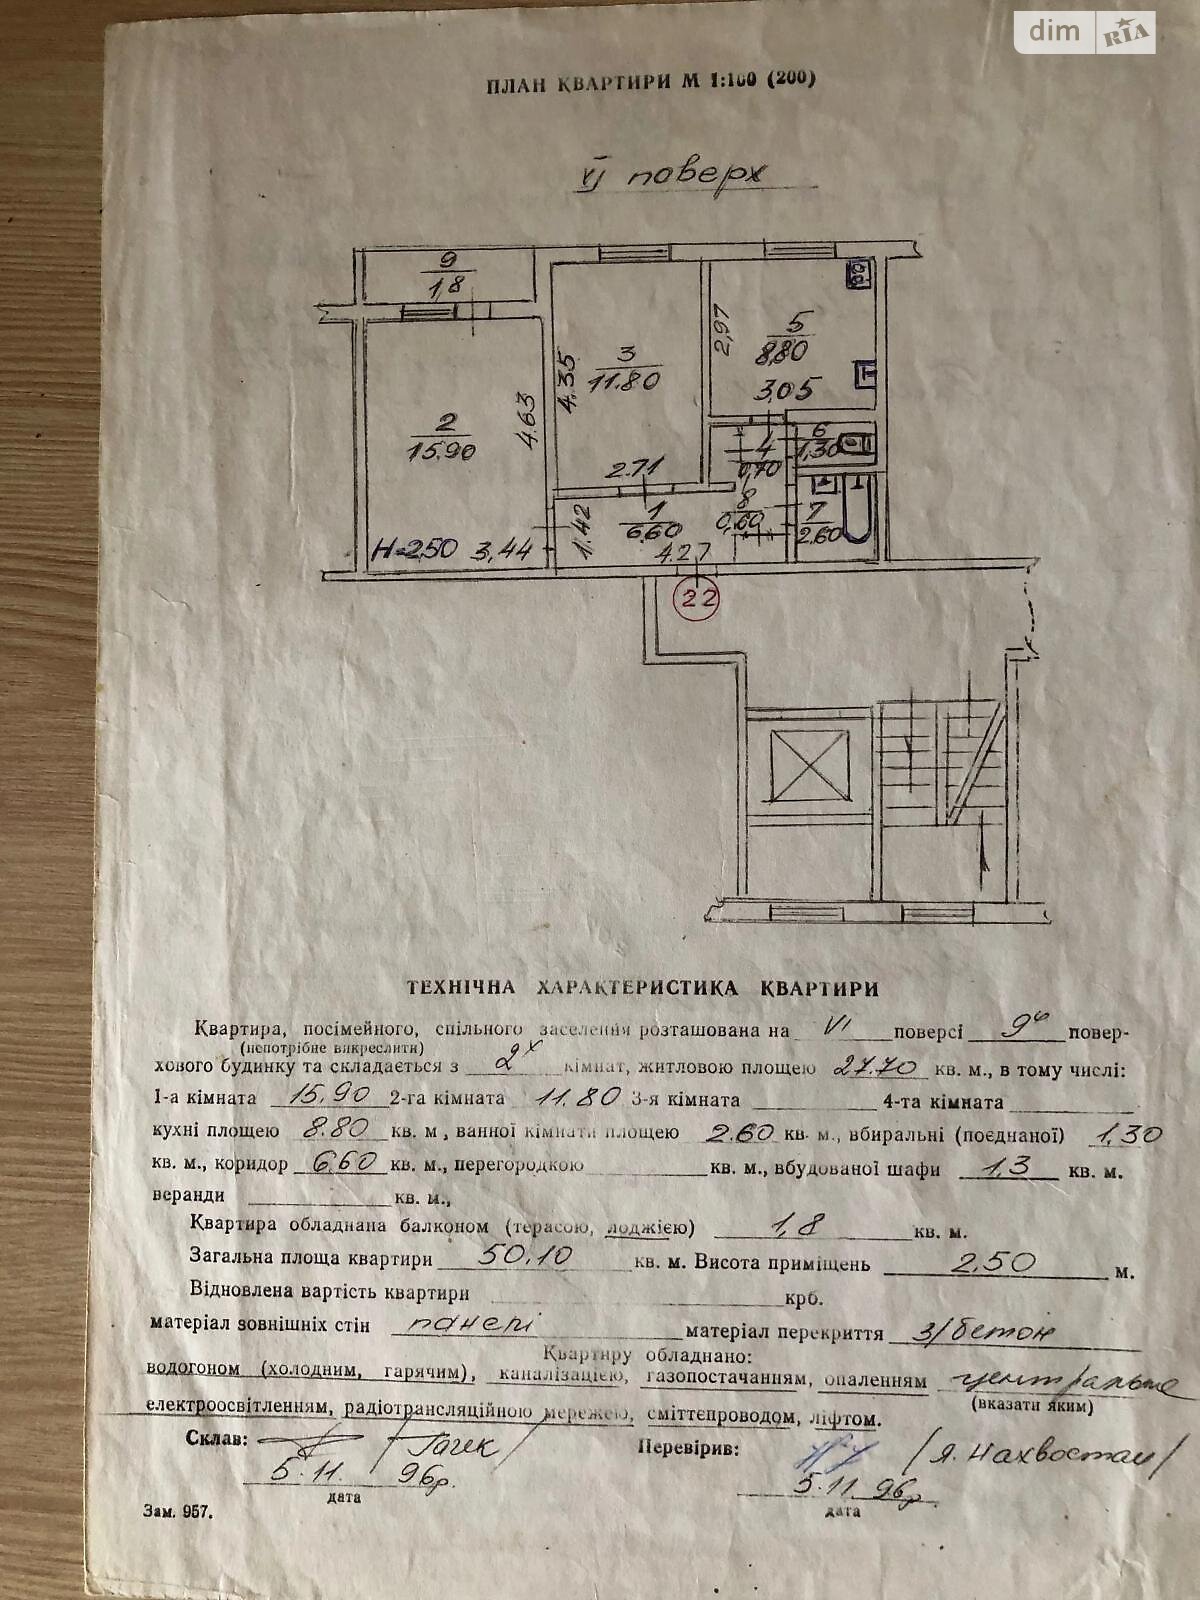 dim RIA
ПЛАН КВАРТИРИ М 1:100 (200)
VI поверх
9
1,8
2
15.90
4.63
H=2,50 3,44
3
11.80
4.35
2.71
5
8,80
2,97
3,05
4
0,70
6
1,30
7
2.60
8
0,60
1
6.60
1.42
4.27
22
ТЕХНІЧНА ХАРАКТЕРИСТИКА КВАРТИРИ
Квартира, посімейного, спільного заселення розташована на VI поверсі 9и повер-
(непотрібне викреслити)
хового будинку та складається з 2х кімнат, житловою площею 27.70 кв. м., в тому числі:
1-а кімната 15,90 2-га кімната 11.80 3-я кімната 4-та кімната
кухні площею 8.80 кв. м, ванної кімнати площею 2.60 кв. м., вбиральні (поєднаної) 1,30
кв. м., коридор 6,60 кв. м., перегородкою кв. м., вбудованої шафи 1,3 кв. м.
веранди кв. м.,
Квартира обладнана балконом (терасою, лоджією) 1,8 кв. м.
Загальна площа квартири 50,10 кв. м. Висота приміщень 2,50 м.
Відновлена вартість квартири крб.
матеріал зовнішніх стін панелі матеріал перекриття з/бетон
Квартиру обладнано:
водогоном (холодним, гарячим), каналізацією, газопостачанням, опаленням центральне
(вказати яким)
електроосвітленням, радіотрансляційною мережею, сміттєпроводом, ліфтом.
Склав: Перевірив:
5.11. 96р. 5.11. 96р.
дата дата
Зам. 957.